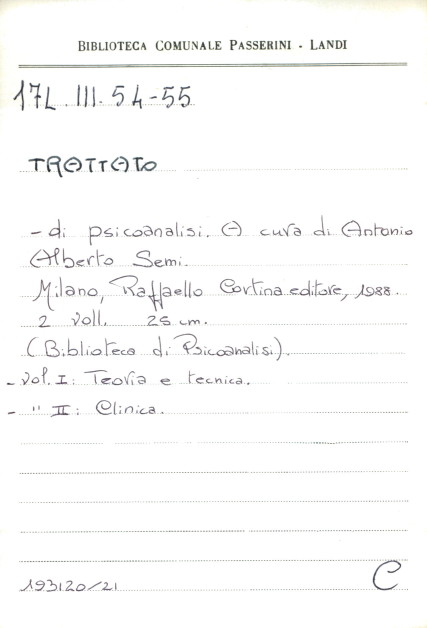 BIBLIOTECA COMUNALE PASSERINI - LANDI
17L.III.54-55
TRATTATO
- di psicoanalisi. A cura di Antonio
Alberto Semi.
Milano, Raffaello Cortina editore, 1988.
2 voll. 25 cm.
(Biblioteca di Psicoanalisi).
- vol. I: Teoria e tecnica.
- " II: Clinica.
193120/21
C